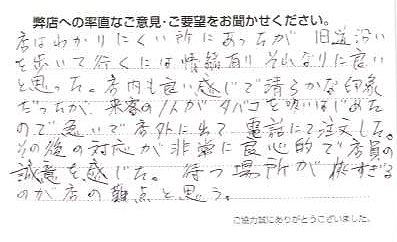 弊店への率直なご意見・ご要望をお聞かせください。
店はわかりにくい所にあったが 旧道沿い
を歩いて行くには情緒有り それなりに良い
と思った。店内も良い感じで清らかな印象
だったが、来客の1人がタバコを吸いはじめた
ので急いで店外に出て 電話にて注文した。
その後の対応が非常に良心的で店員の
誠意を感じた。待つ場所が狭すぎる
のが店の難点と思う。
ご協力誠にありがとうございました。